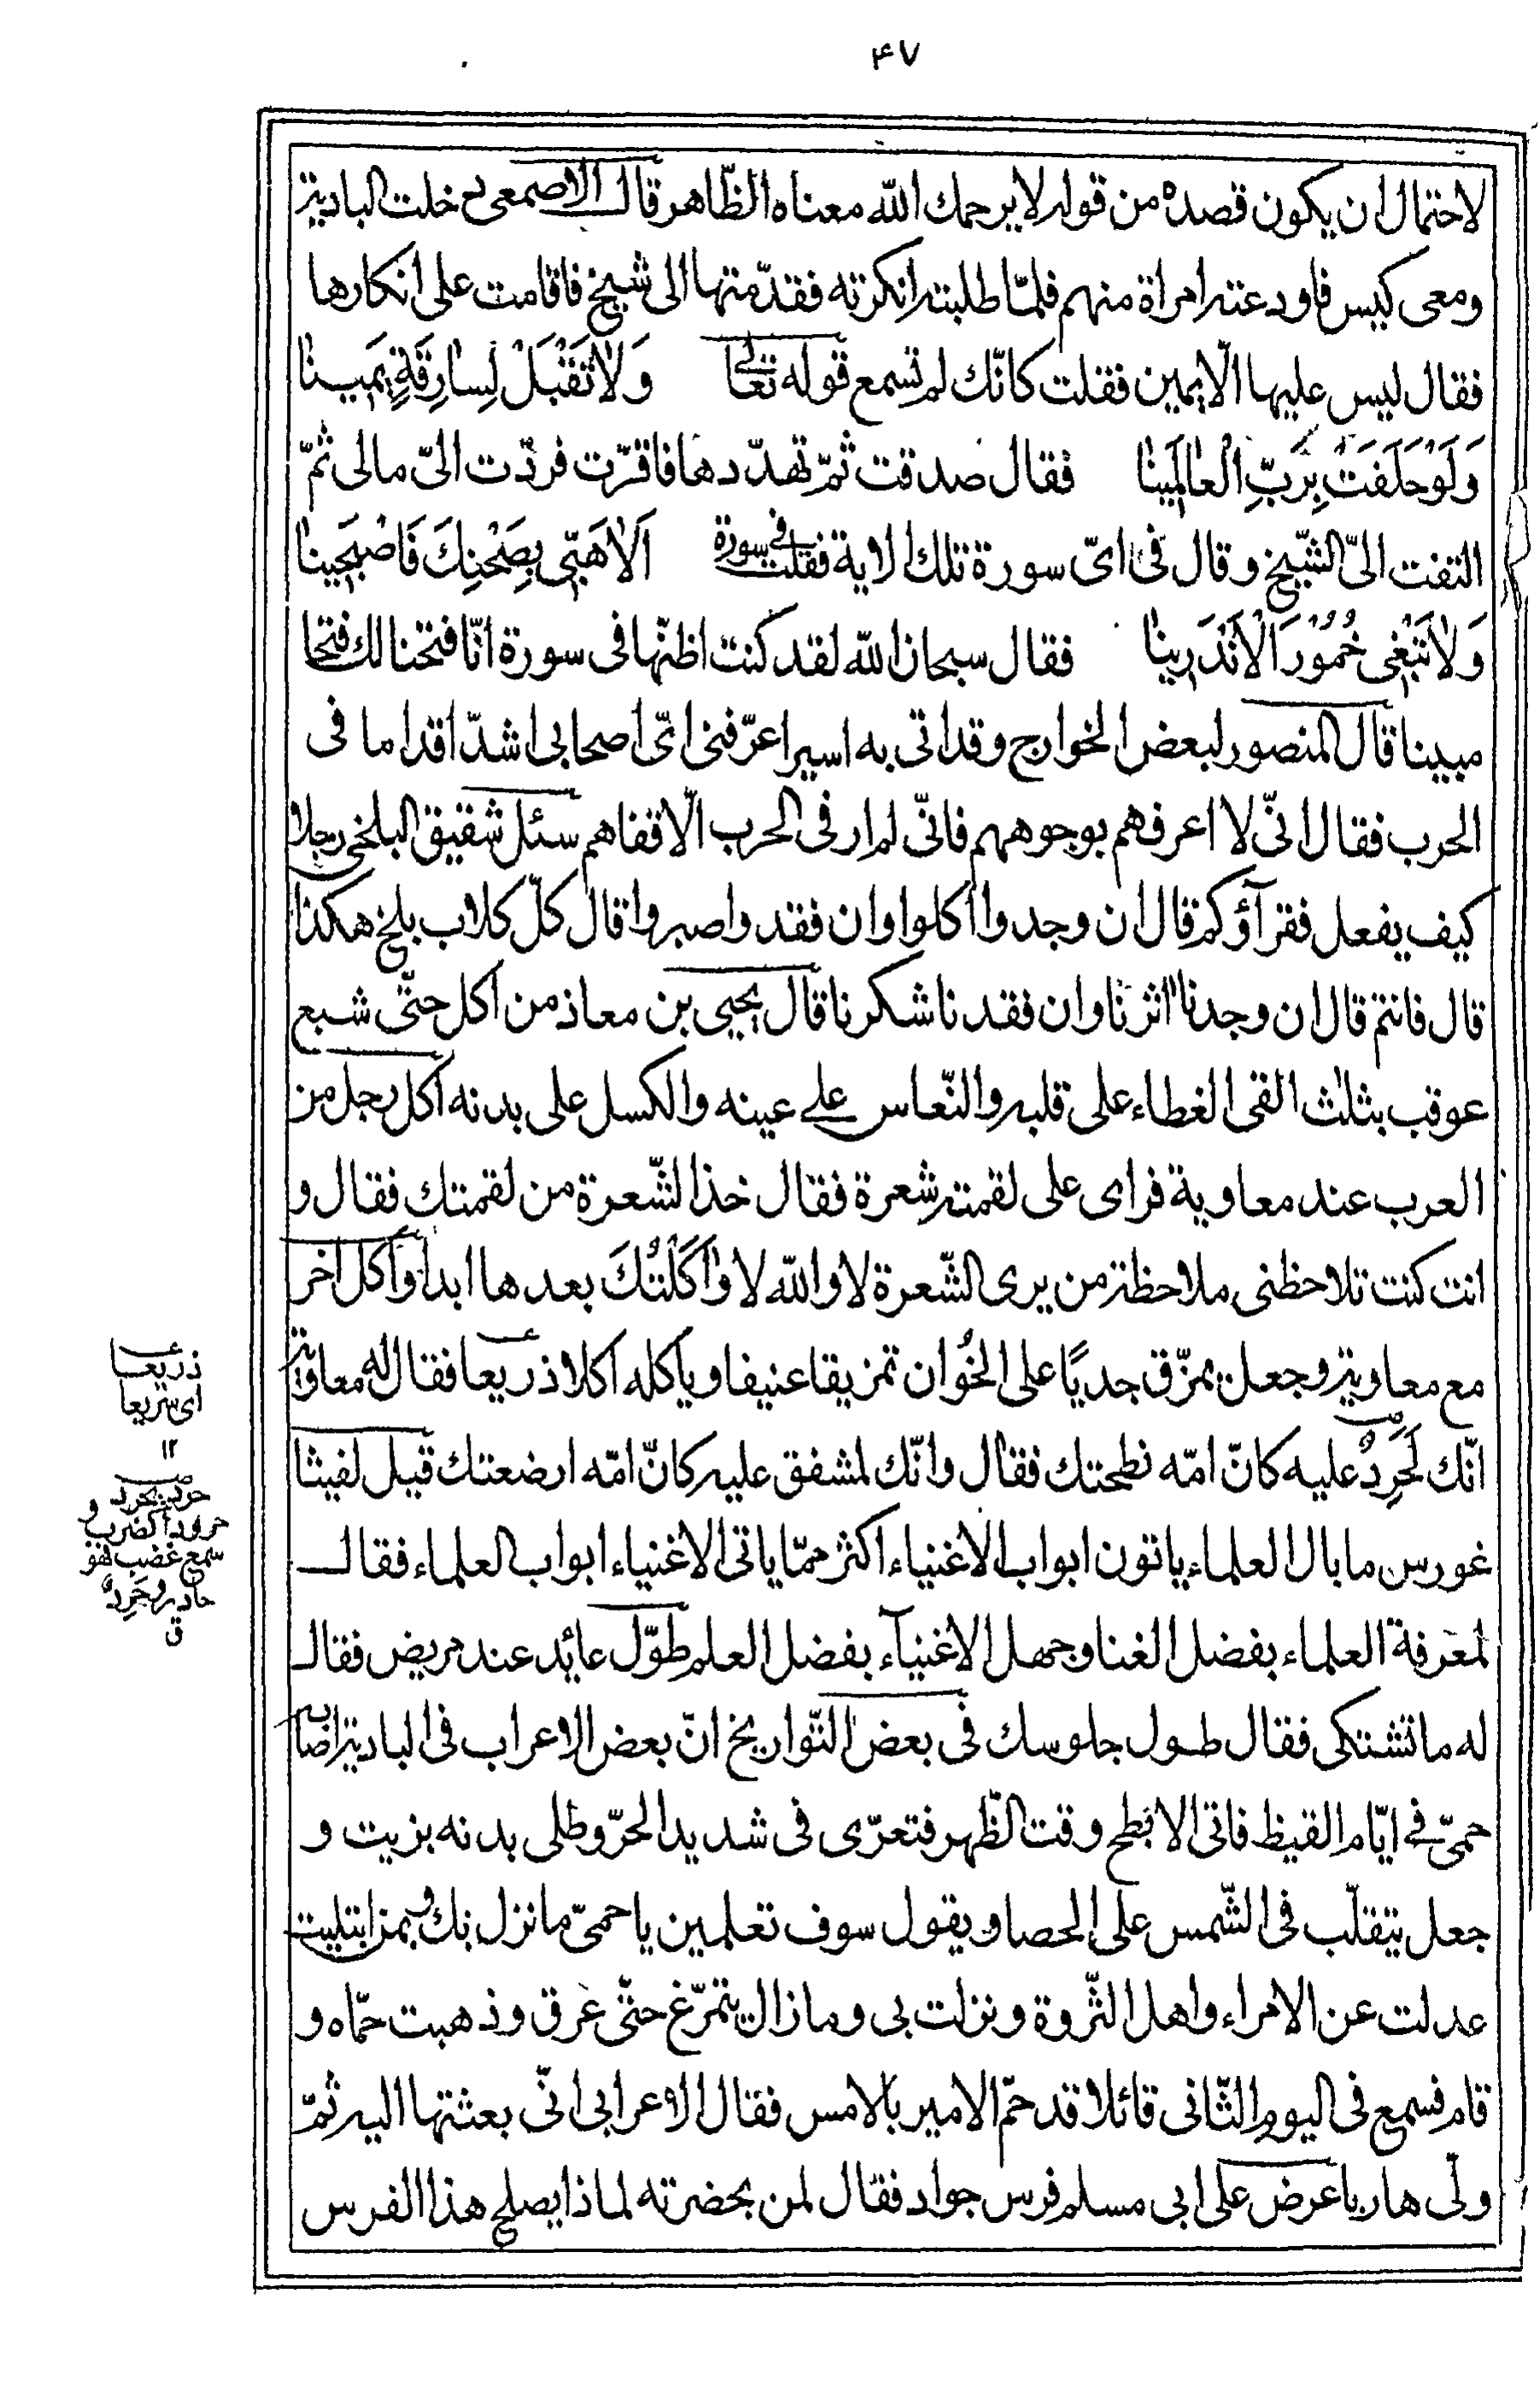 ۴۷
لاحتمال ان يكون قصده من قوله لا يرحمك الله معناه الظّاهر قال الاصمعى دخلت البادية
ومعى كيس فاودعته امراة منهم فلمّا طلبته انكرته فقدّمتها الى شيخ فاقامت على انكارها
فقال ليس عليها الّا يمين فقلت كانّك لم تسمع قوله تعالى وَلاٰ تَقْبَلْ لِسٰارِقَةٍ يَمينٰا
وَلَوْ حَلَفَتْ بِرَبِّ الْعٰالَمينٰا فقال صدقت ثمّ تهدّدها فاقرّت فردّت الىّ مالى ثمّ
التفت الىّ الشّيخ وقال فى اىّ سورة تلك الاية فقلت فى سورة اَلاٰ هَبّى بِصَحْنِكَ فَاصْبَحينٰا
وَلاٰ تَبْغى خُمُورَ الْاَنْدَرينٰا فقال سبحان الله لقد كنت اظنّها فى سورة انّا فتحنا لك فتحا
مبينا قال المنصور لبعض الخوارج وقد اتى به اسيرا عرّفنى اىّ اصحابى اشدّ اقداما فى
الحرب فقال انّى لا اعرفهم بوجوههم فانّى لم ار فى الحرب الّا قفاهم سئل شقيق البلخى رجلا
كيف يفعل فقرآؤكم قال ان وجدوا اكلوا وان فقدوا صبروا قال كلّ كلاب بلخ هكذا
قال فانتم قال ان وجدنا اثرنا وان فقدنا شكرنا قال يحيى بن معاذ من اكل حتّى شبع
عوقب بثلٰث القى الغطاء على قلبه والنّعاس على عينه والكسل على بدنه اكل رجل من
العرب عند معاوية فراى على لقمته شعرة فقال خذ الشّعرة من لقمتك فقال و
انت كنت تلاحظنى ملاحظة من يرى الشّعرة لا والله لا وٰاكَلْتُكَ بعدها ابدا واكل اخر
مع معاوية وجعل يمزّق جديًا على الخُوان تمزيقا عنيفا وياكله اكلا ذريعا فقال له معاوية
انّك لَحَرِدٌ عليه كانّ امّه نطحتك فقال وانّك لمشفق عليه كانّ امّه ارضعتك قيل لفيثا
غورس ما بال العلماء ياتون ابواب الاغنياء اكثر ممّا ياتى الاغنياء ابواب العلماء فقال
لمعرفة العلماء بفضل الغنا وجهل الاغنيآء بفضل العلم طوّل عائد عند مريض فقال
له ما تشتكى فقال طول جلوسك فى بعض التّواريخ انّ بعض الاعراب فى البادية اصابه
حمىّ فى ايّام القيظ فاتى الابطح وقت الظّهر فتعرّى فى شديد الحرّ وطلى بدنه بزيت و
جعل يتقلّب فى الشّمس على الحصا ويقول سوف تعلمين يا حمىّ ما نزل بك وبمن ابتليت
عدلت عن الامراء واهل الثّروة ونزلت بى وما زال يتمرّغ حتّى عرق وذهبت حمّاه و
قام فسمع فى اليوم الثّانى قائلا قد حمّ الامير بالامس فقال الاعرابى انّى بعثتها اليه ثمّ
ولّى هاربا عرض على ابى مسلم فرس جواد فقال لمن بحضرته لما ذا يصلح هذا الفرس
ذريعا
اى سريعا
۱۲
حرد يحرد
حرودا كضرب و
سمع غضب فهو
حادر وحَرِدٌ
ق